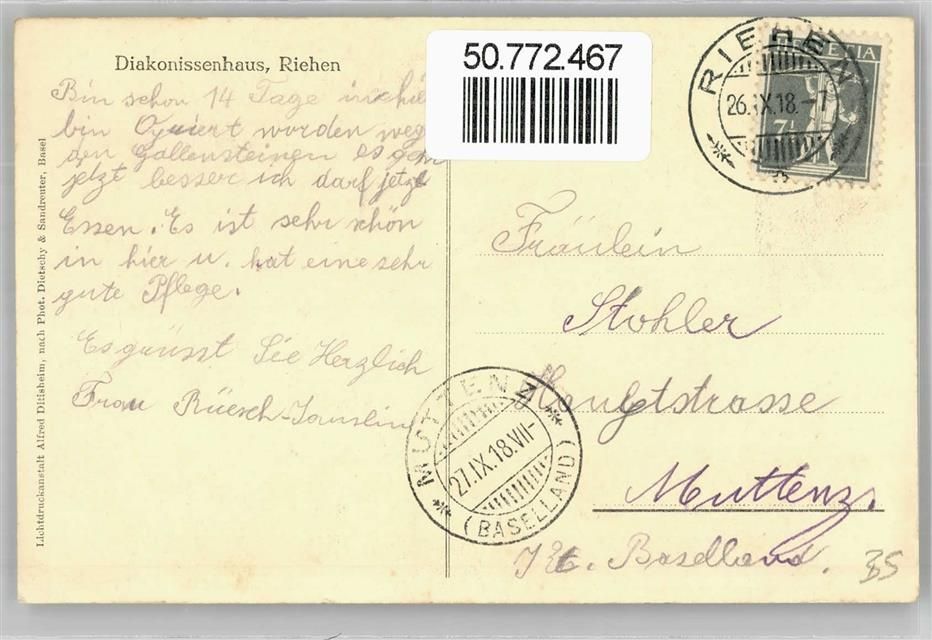 Diakonissenhaus, Riehen
Bin schon 14 Tage in
bin Operiert worden weg
den Gallensteinen es geh
jetzt besser ich darf jetzt
Essen. Es ist sehr schön
in hier u. hat eine sehr
gute Pflege.
Es grüsst Sie Herzlich
Frau Rüesch-
Lichtdruckanstalt Alfred Ditisheim, nach Phot. Dietschy & Sandreuter, Basel
50.772.467
HELVETIA
7½
RIEHEN
26.IX.18.-7
Fräulein
Stohler
Hauptstrasse
Muttenz.
Kt. Baselland.
MUTTENZ
27.IX.18.VII-
(BASELLAND)
BS